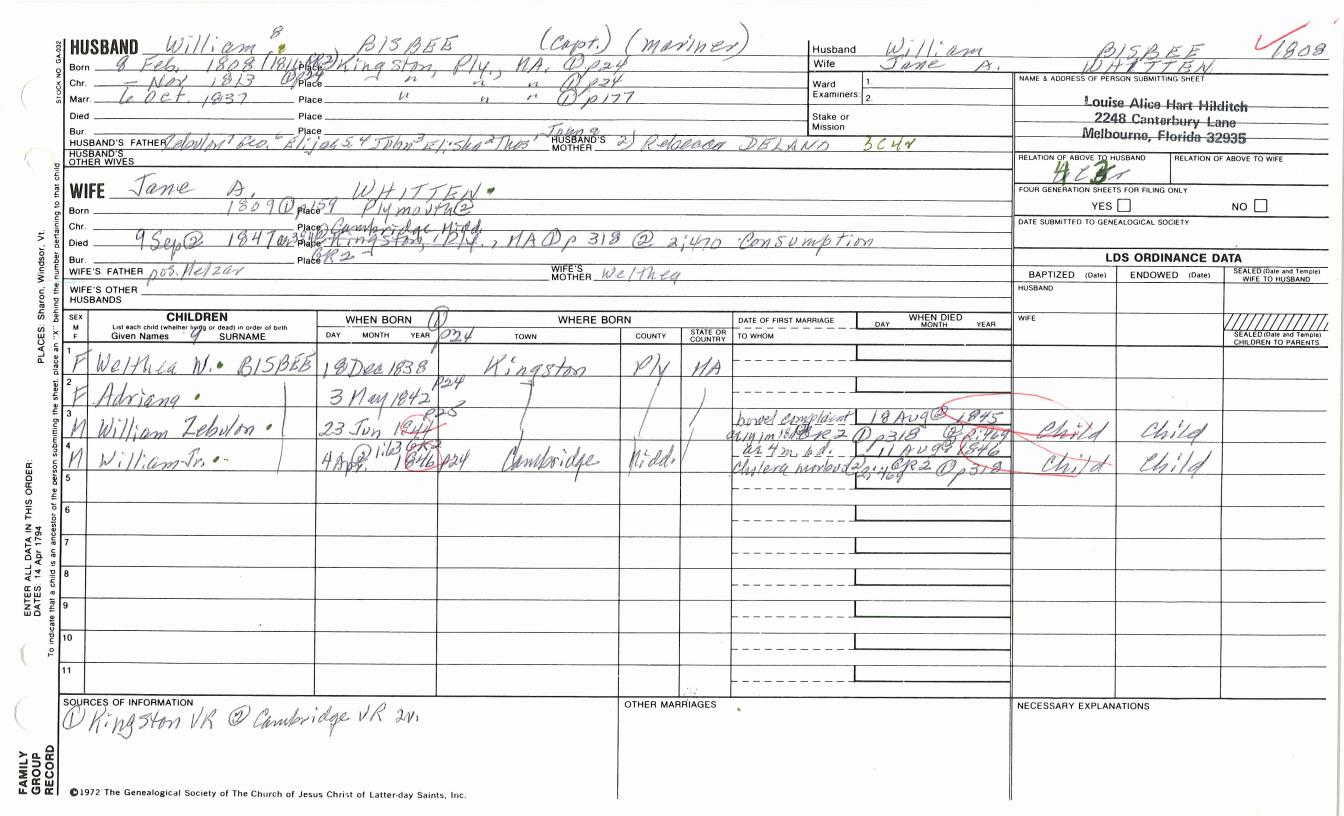 STOCK NO. GA-032
HUSBAND William 8 BISBEE (Capt.) (mariner)
Born 8 Feb. 1808 Place Kingston, Ply., MA. ① p24
Chr. – Nov 1813 ① p24 Place " " " ① p24
Marr. 6 Oct. 1837 Place " " " ① p177
Died Place
Bur. Place
HUSBAND'S FATHER Zebulon⁷ Geo.⁶ Elijah 5,4 John³ Elisha² Thos¹ HUSBAND'S MOTHER 2) Rebecca DELANO 3C4r
HUSBAND'S OTHER WIVES
Husband William BISBEE 1808
Wife Jane A. WHITTEN
Ward Examiners 1. 2.
Stake or Mission
NAME & ADDRESS OF PERSON SUBMITTING SHEET
Louise Alice Hart Hilditch
2248 Canterbury Lane
Melbourne, Florida 32935
RELATION OF ABOVE TO HUSBAND RELATION OF ABOVE TO WIFE
FOUR GENERATION SHEETS FOR FILING ONLY
YES NO
DATE SUBMITTED TO GENEALOGICAL SOCIETY
WIFE Jane A. WHITTEN
Born 1809 ① p159 Place Plymouth ②
Chr. Place Cambridge Midd.
Died 9 Sep ② 1847 Place Kingston, Ply., MA ① p 318 ② 2:470 Consumption
Bur. Place GR2
WIFE'S FATHER pos. Melzar WIFE'S MOTHER Welthea
WIFE'S OTHER HUSBANDS
LDS ORDINANCE DATA
BAPTIZED (Date) ENDOWED (Date) SEALED (Date and Temple) WIFE TO HUSBAND
HUSBAND
WIFE
SEALED (Date and Temple) CHILDREN TO PARENTS
SEX M F
CHILDREN
List each child (whether living or dead) in order of birth
Given Names 9 SURNAME
WHEN BORN ① p24
DAY MONTH YEAR
WHERE BORN
TOWN COUNTY STATE OR COUNTRY
DATE OF FIRST MARRIAGE
TO WHOM
WHEN DIED
DAY MONTH YEAR
1 F Welthea N. BISBEE 18 Dec 1838 Kingston Ply MA
2 F Adriana 3 May 1842 p24
3 M William Zebulon 23 Jun 1844 p25 bowel complaint 18 Aug ② 1845 GR2 ① p318 ② 2:469 Child Child
4 M William Jr. 4 Apr. ② 1:63 GR2 1846 p24 Cambridge Midd. 11 Aug ② 1846 cholera morbus ② 2:469 GR2 ① p318 Child Child
5
6
7
8
9
10
11
SOURCES OF INFORMATION
① Kingston VR ② Cambridge VR 2v.
OTHER MARRIAGES
NECESSARY EXPLANATIONS
ENTER ALL DATA IN THIS ORDER:
DATES: 14 Apr 1794 PLACES: Sharon, Windsor, Vt.
To indicate that a child is an ancestor of the person submitting the sheet, place an "X" behind the number pertaining to that child
FAMILY GROUP RECORD
©1972 The Genealogical Society of The Church of Jesus Christ of Latter-day Saints, Inc.